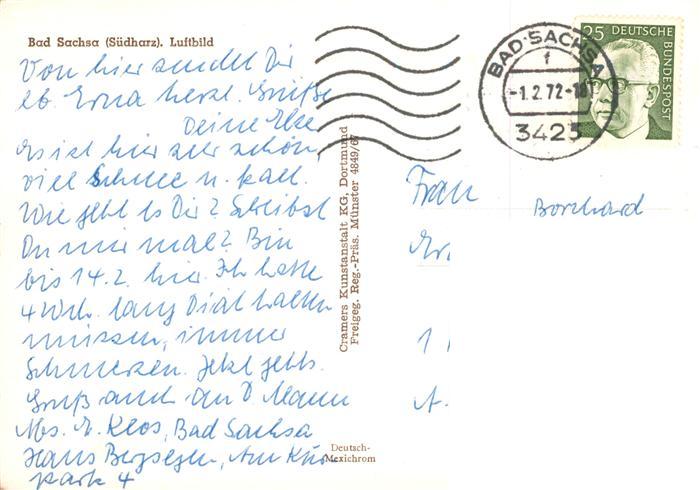 Bad Sachsa (Südharz). Luftbild
Von hier sendet Dir
lb. Erna herzl. Grüße
Deine Else
Es ist hier sehr schön,
viel Schnee u. kalt.
Wie geht es Dir? Schreibst
Du mir mal? Bin
bis 14.2. hier. Ich hatte
4 Wch. lang Diät halten
müssen, immer
Schmerzen. Jetzt gehts.
Gruß auch an D. Mann
Abs. E. Klos, Bad Sachsa
Haus Bergsegen, Am Kur-
park 4
Cramers Kunstanstalt KG, Dortmund
Freigeg. Reg.-Präs. Münster 4849/67
Deutsch-
Mexichrom
BAD SACHSA
f
-1.2.72-18
3423
25 DEUTSCHE
BUNDESPOST
Frau
Borchard
Er
1
A.